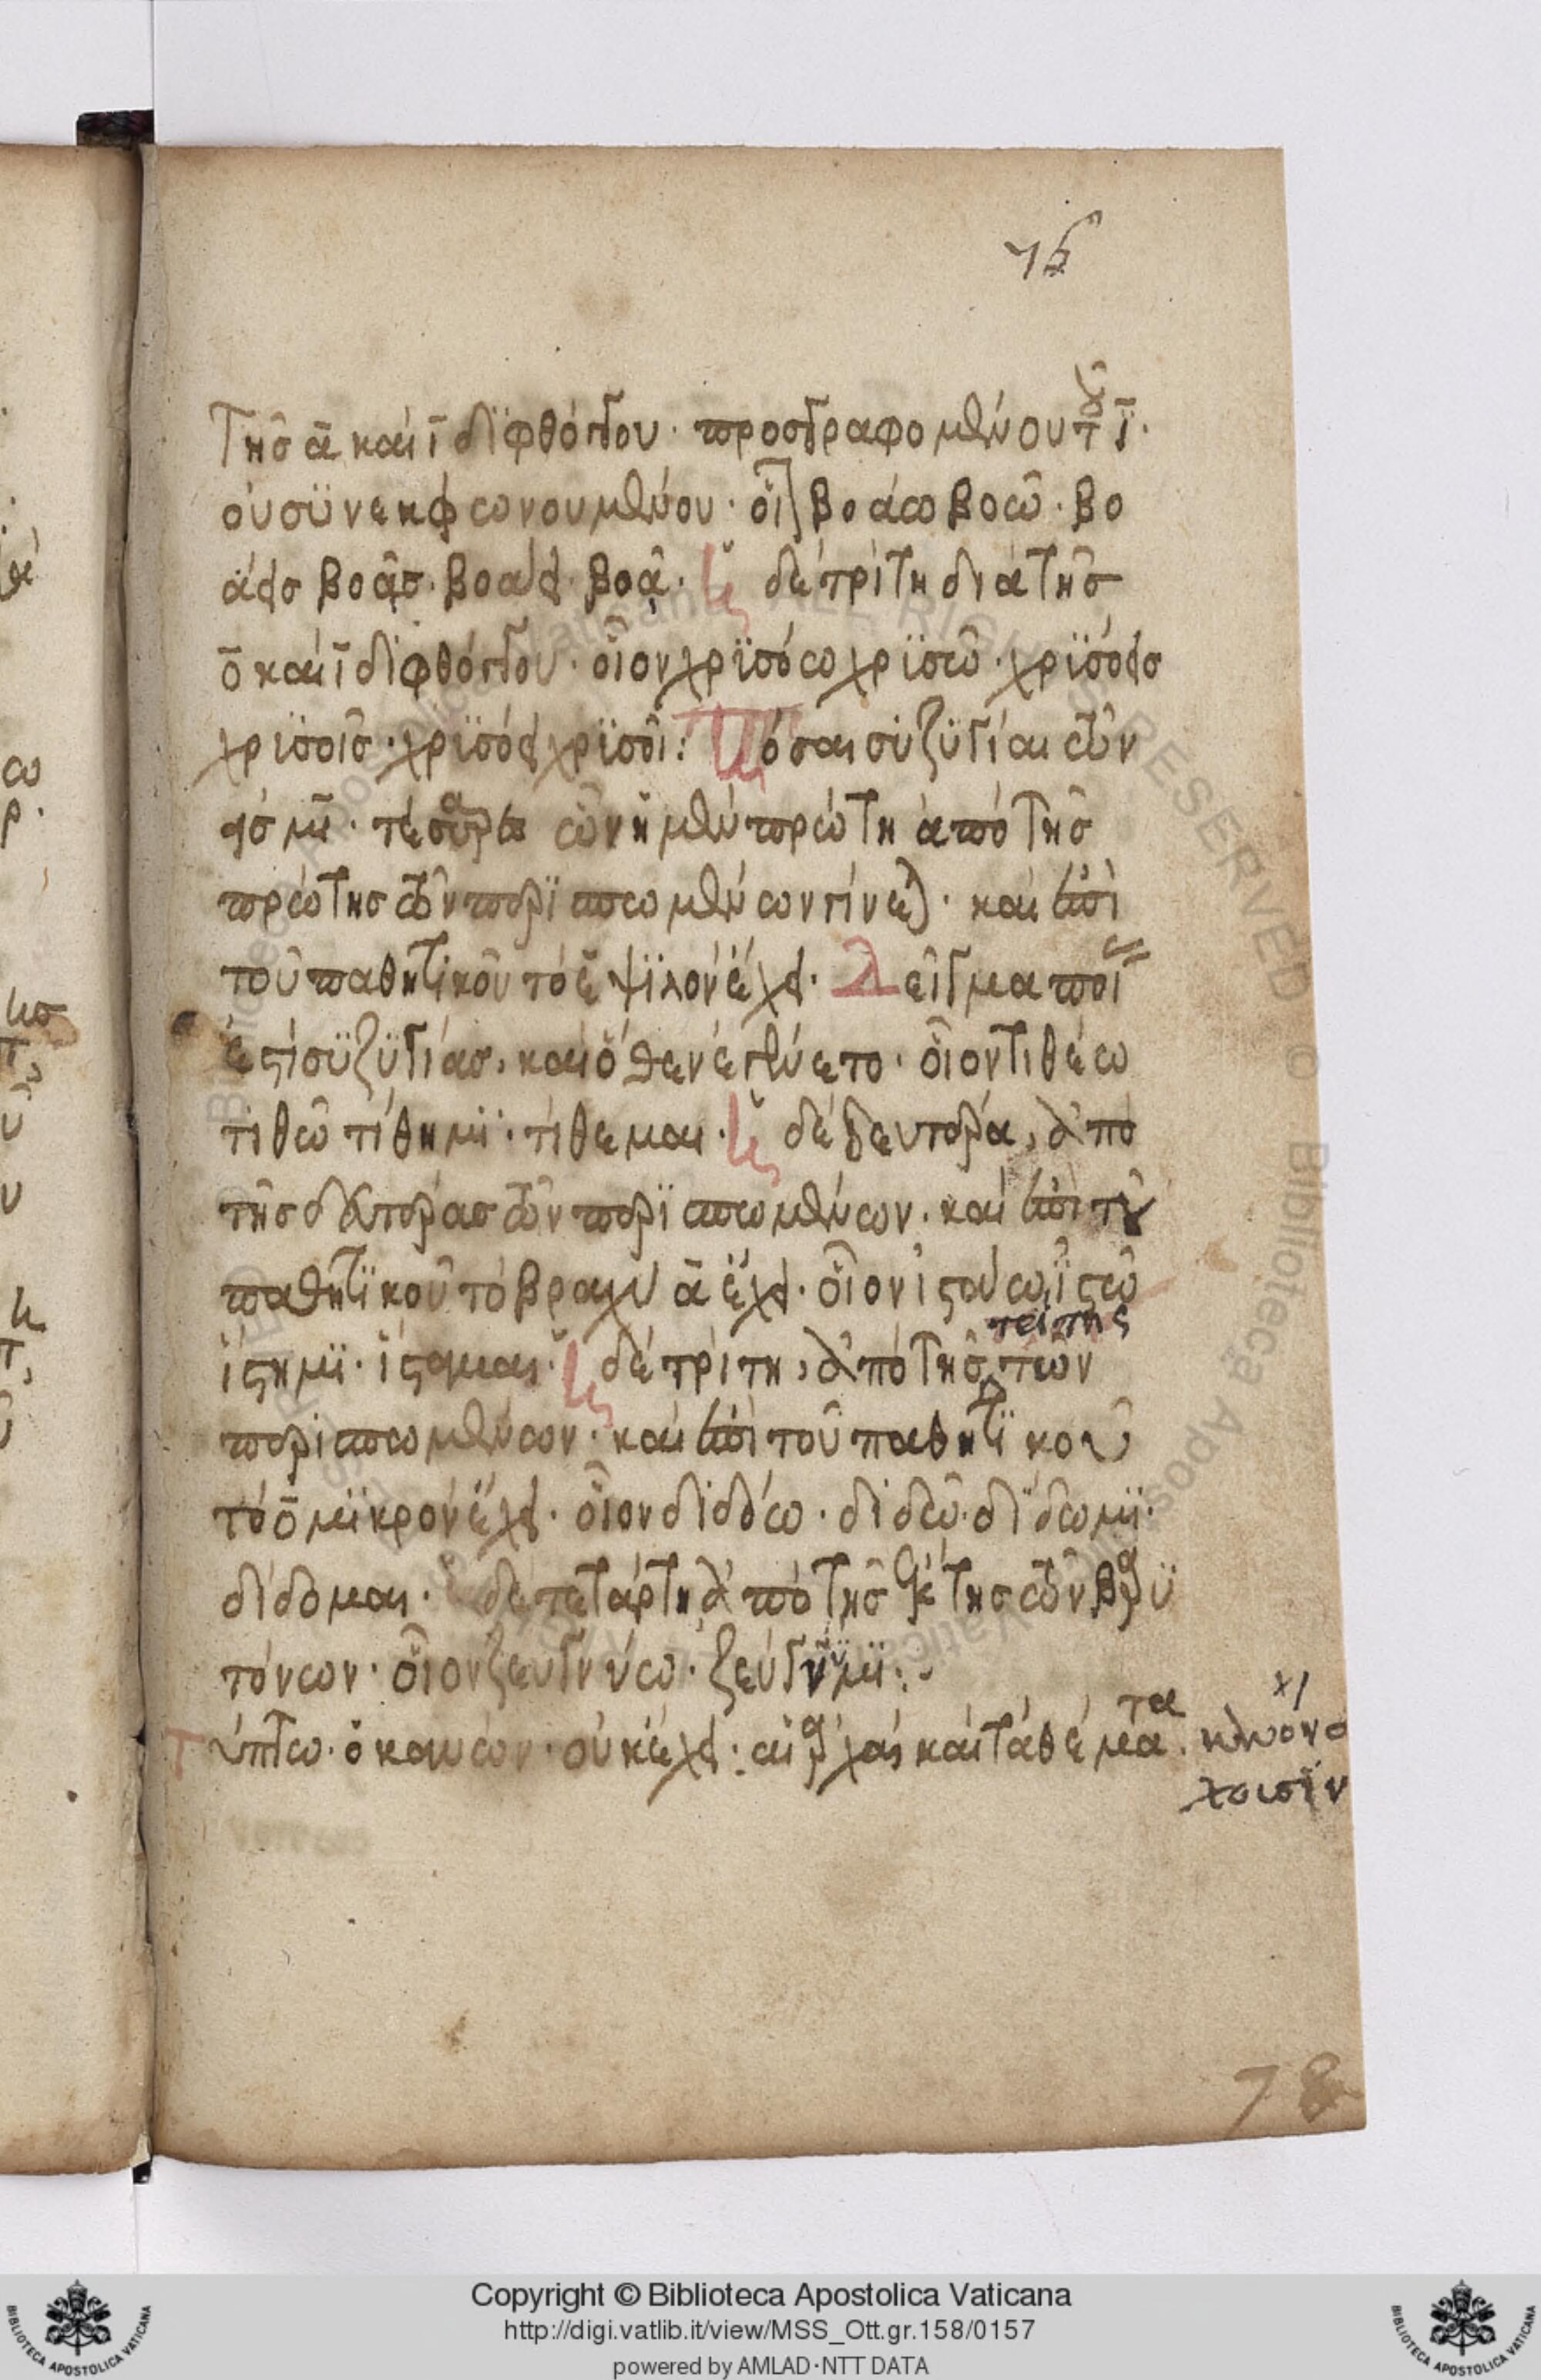 78
Τῆς ᾱ καὶ ῑ διφθόγγου· προσγραφομένου τοῦ ῑ·
οὐ συνεκφωνουμένου· οἷον βοάω βοῶ· βο
άεις βοᾷς· βοάει βοᾷ· ἡ δὲ τρίτη διὰ τῆς
ō καὶ ῑ διφθόγγου· οἷον χρϋσόω χρϋσῶ· χρϋσόεις
χρϋσοῖς· χρϋσόει χρϋσοῖ: Πόσαι συζυγίαι τῶν
εἰς μϊ· τέσσαρες ὧν ἡ μὲν πρώτη ἀπὸ τῆς
πρώτης τῶν περισπωμένων γίνεται· καὶ ἐπὶ
τοῦ παθητικοῦ τὸ ε̄ ψιλὸν ἔχει· Δεῖγμα ποί
ας ἐστὶ συζυγίας, καὶ ὅθεν ἐγένετο· οἷον τιθέω
τιθῶ τίθημϊ· τίθεμαι· ἡ δὲ δευτέρα, ἀπὸ
τῆς δευτέρας τῶν περισπωμένων· καὶ ἐπὶ τοῦ
παθητικοῦ τὸ βραχὺ ᾱ ἔχει· οἷον ἱστάω, ἱστῶ
ἵστημϊ· ἵσταμαι· ἡ δὲ τρίτη, ἀπὸ τῆς τρίτης τῶν
περισπωμένων· καὶ ἐπὶ τοῦ παθητικοῦ
τὸ ō μϊκρὸν ἔχει· οἷον διδόω· διδῶ· δίδωμϊ·
δίδομαι· ἡ δὲ τετάρτη ἀπὸ τῆς ἕκτης τῶν βαρυ
τόνων· οἷον ζευγνύω· ζεύγνυμϊ:
Τύπτω· ὁ κανών· οὐκ ἔχει· αἱ ἀρχαὶ καὶ τὰ θέματα
78
Copyright © Biblioteca Apostolica Vaticana
http://digi.vatlib.it/view/MSS_Ott.gr.158/0157
powered by AMLAD·NTT DATA